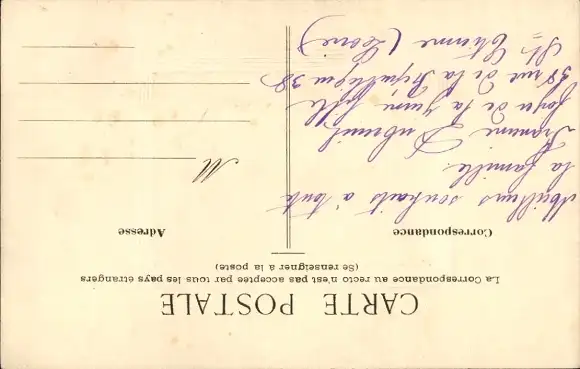 CARTE POSTALE
La Correspondance au recto n'est pas acceptée par tous les pays étrangers
(Se renseigner à la poste)
Correspondance
Adresse
Meilleurs souhaits à toute
la famille
Dubreuil
foyer de la Jeune fille
38 rue de la République 38
St Etienne (Loire)
M